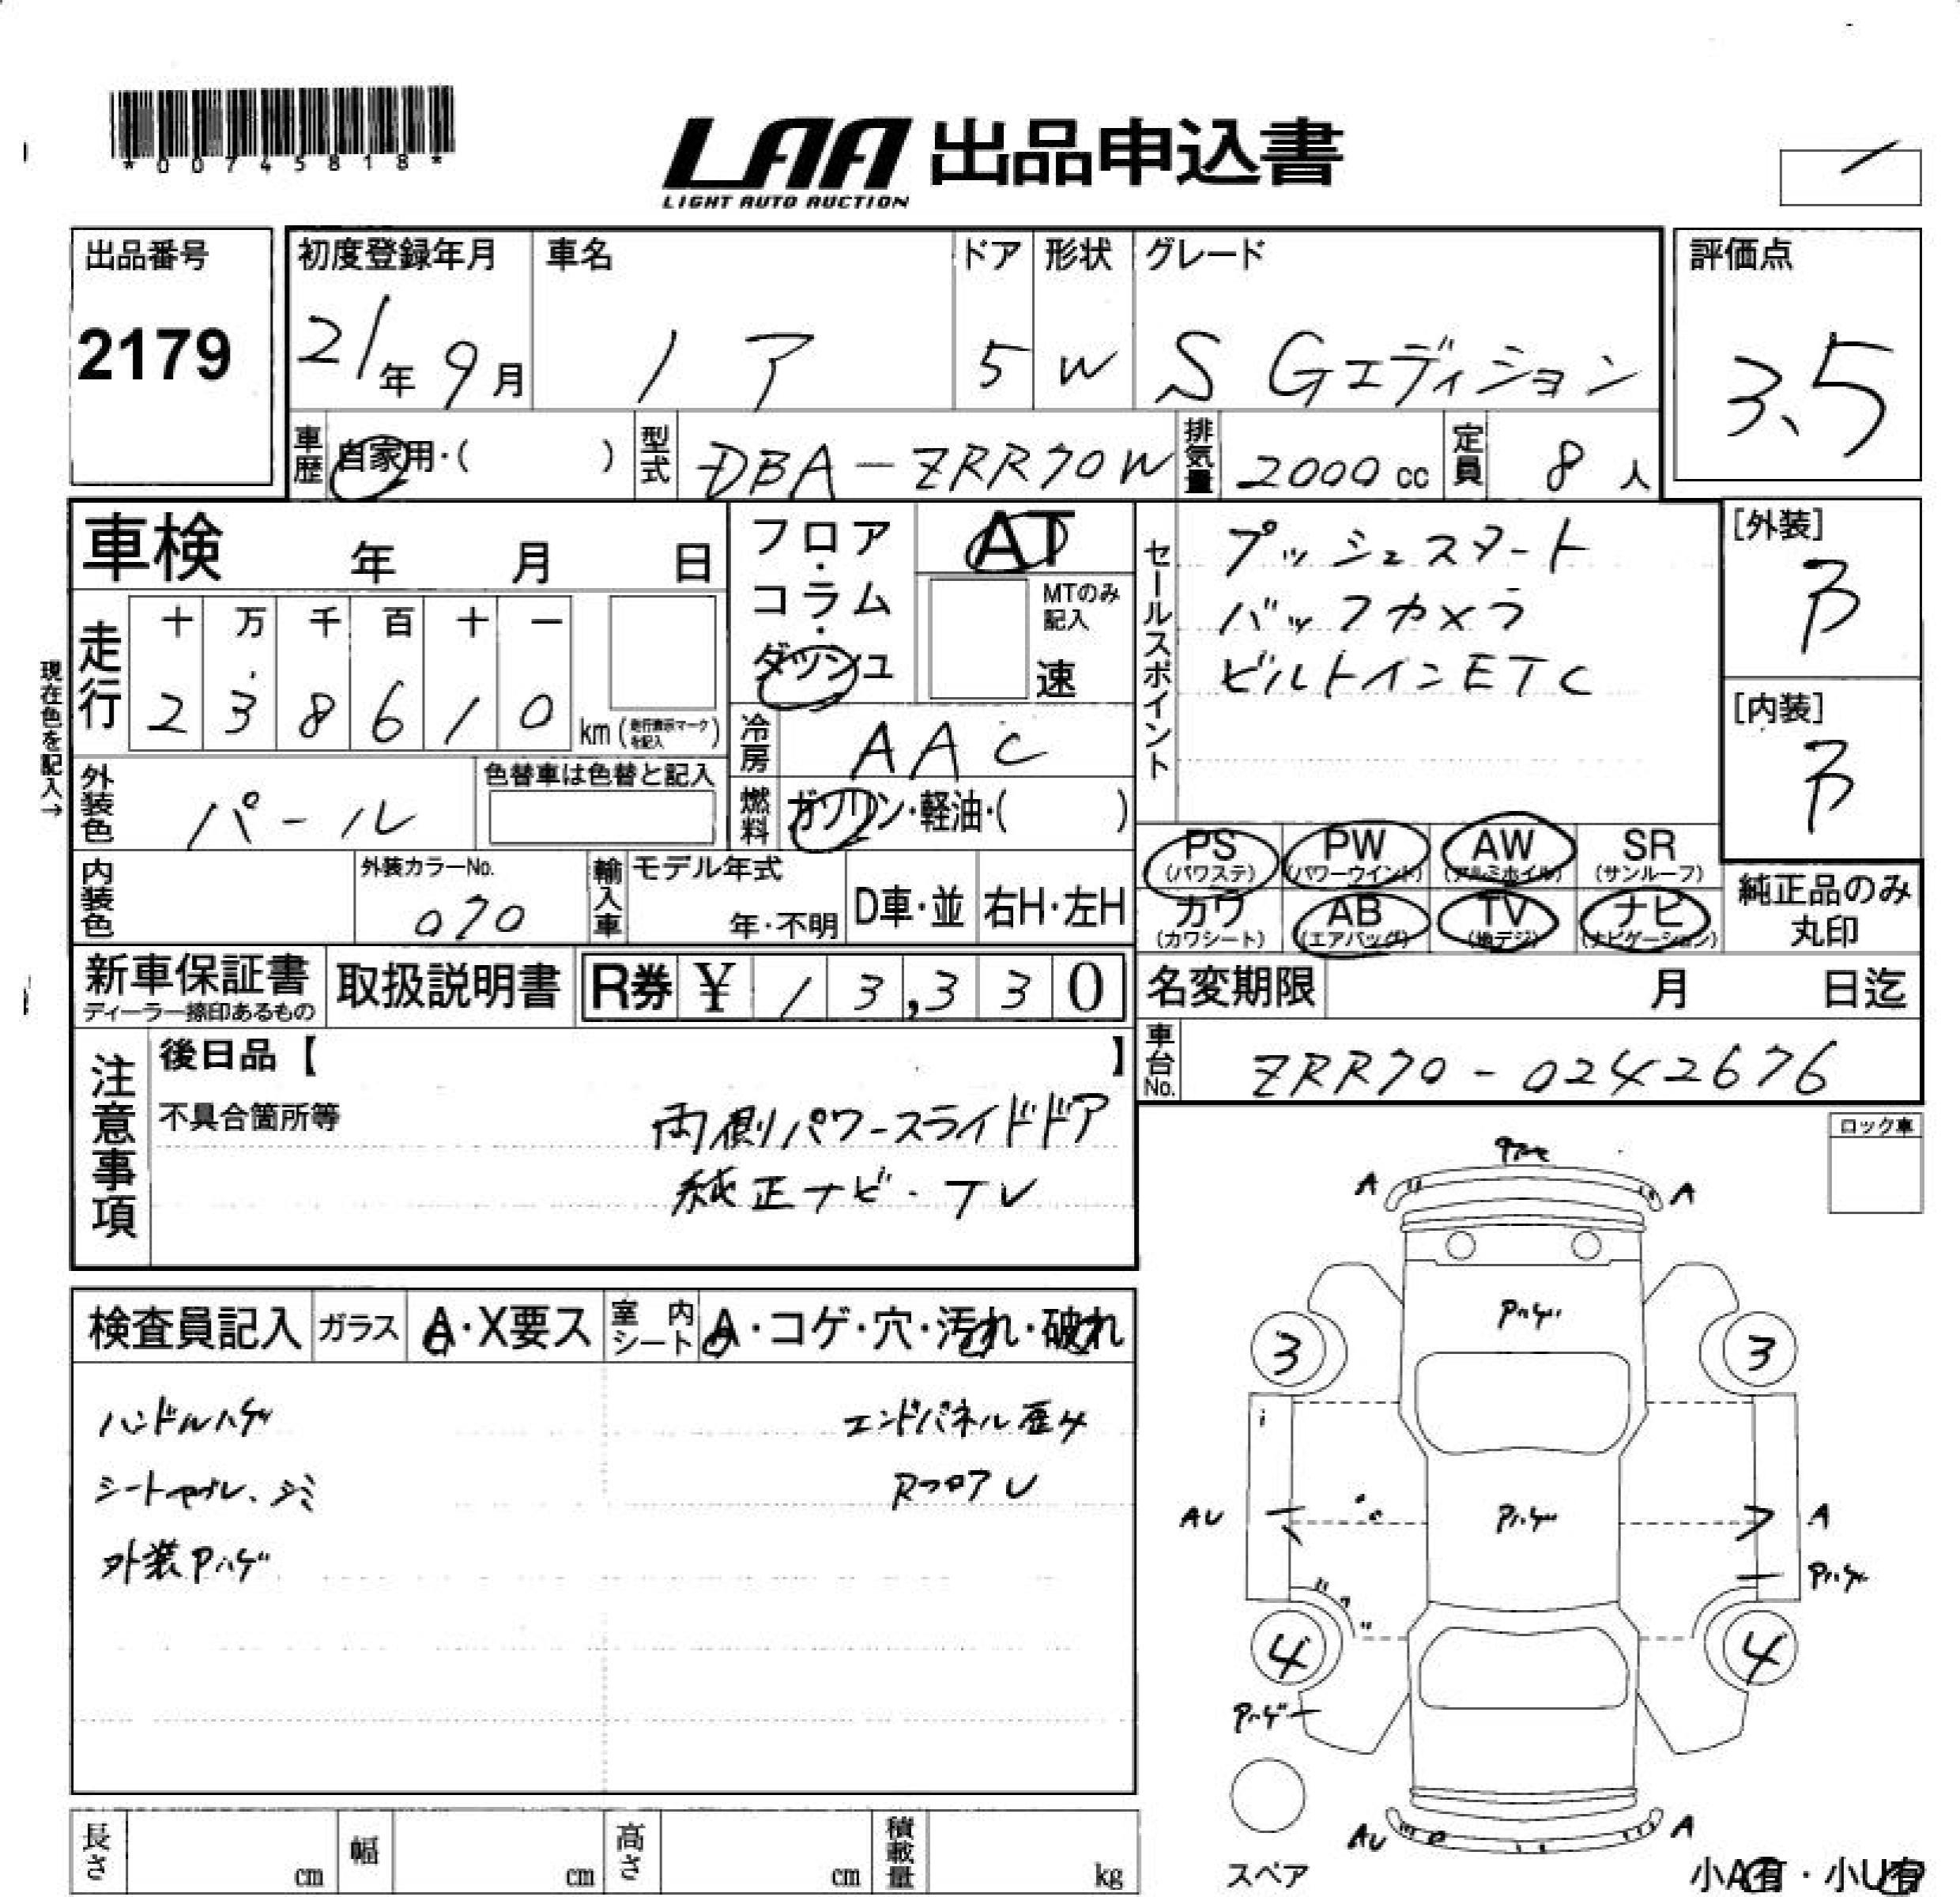 *00745818*
LAA 出品申込書
LIGHT AUTO AUCTION
出品番号
2179
初度登録年月
21年 9月
車名
ノア
ドア
5
形状
W
グレード
S Gエディション
評価点
3.5
車歴
自家用・( )
型式
DBA-ZRR70W
排気量
2000 cc
定員
8 人
車検 年 月 日
フロア・コラム・ダッシュ
AT
MTのみ記入
速
セールスポイント
プッシュスタート
バックカメラ
ビルトインETC
[外装]
B
[内装]
B
現在色を記入→
走行
十 万 千 百 十 一
2 3 8 6 1 0 km (走行表示マークを記入)
冷房
AAC
外装色
パール
色替車は色替と記入
燃料
ガソリン・軽油・( )
PS (パワステ)
PW (パワーウインド)
AW (アルミホイル)
SR (サンルーフ)
カワ (カワシート)
AB (エアバッグ)
TV (地デジ)
ナビ (ナビゲーション)
純正品のみ
丸印
内装色
外装カラーNo.
070
輸入車
モデル年式
年・不明
D車・並
右H・左H
新車保証書
ディーラー捺印あるもの
取扱説明書
R券 ¥ 13,330
名変期限 月 日迄
車台No.
ZRR70-0242676
注意事項
後日品【 】
不具合箇所等
両側パワースライドドア
純正ナビ・TV
ロック車
検査員記入
ガラス
A・X要ス
室内シート
A・コゲ・穴・汚れ・破れ
ハンドルハゲ
エンドパネル歪み
シートヤブレ、シミ
RフロアU
外装Pハゲ
A
A
Pハゲ
3
3
AU
Pハゲ
A
Pハゲ
4
4
Pハゲ
AU
A
スペア
小A有・小U有
長さ cm
幅 cm
高さ cm
積載量 kg